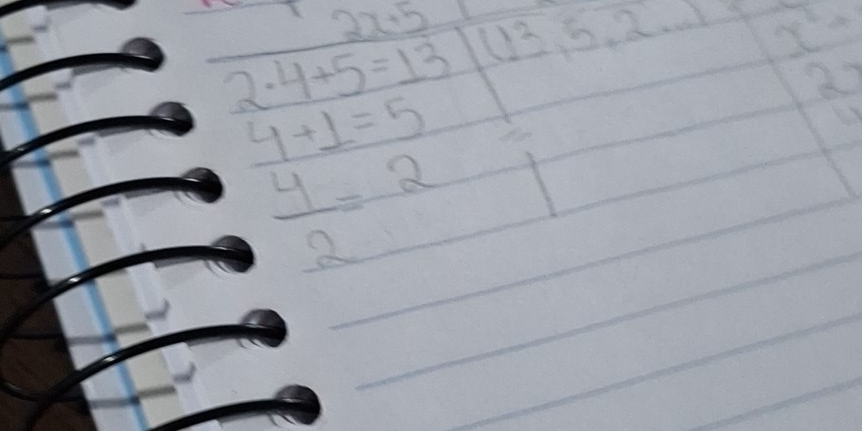 2x+5
2·4+5=13 (13, 5, 2...)
4+1=5
4/2 = 2
x²
2x